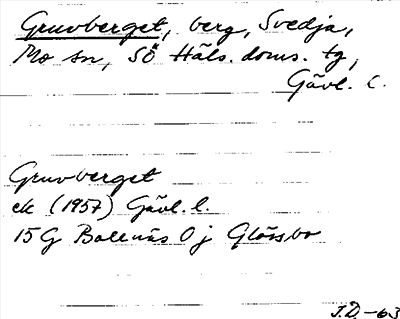 Gruvberget, berg, Svedja,
Mo sn, SÖ Häls. doms. tg,
Gävl. l.
Gruvberget
ek (1957) Gävl. l.
15G Bollnäs 0 j Glössbo
J.D. -63